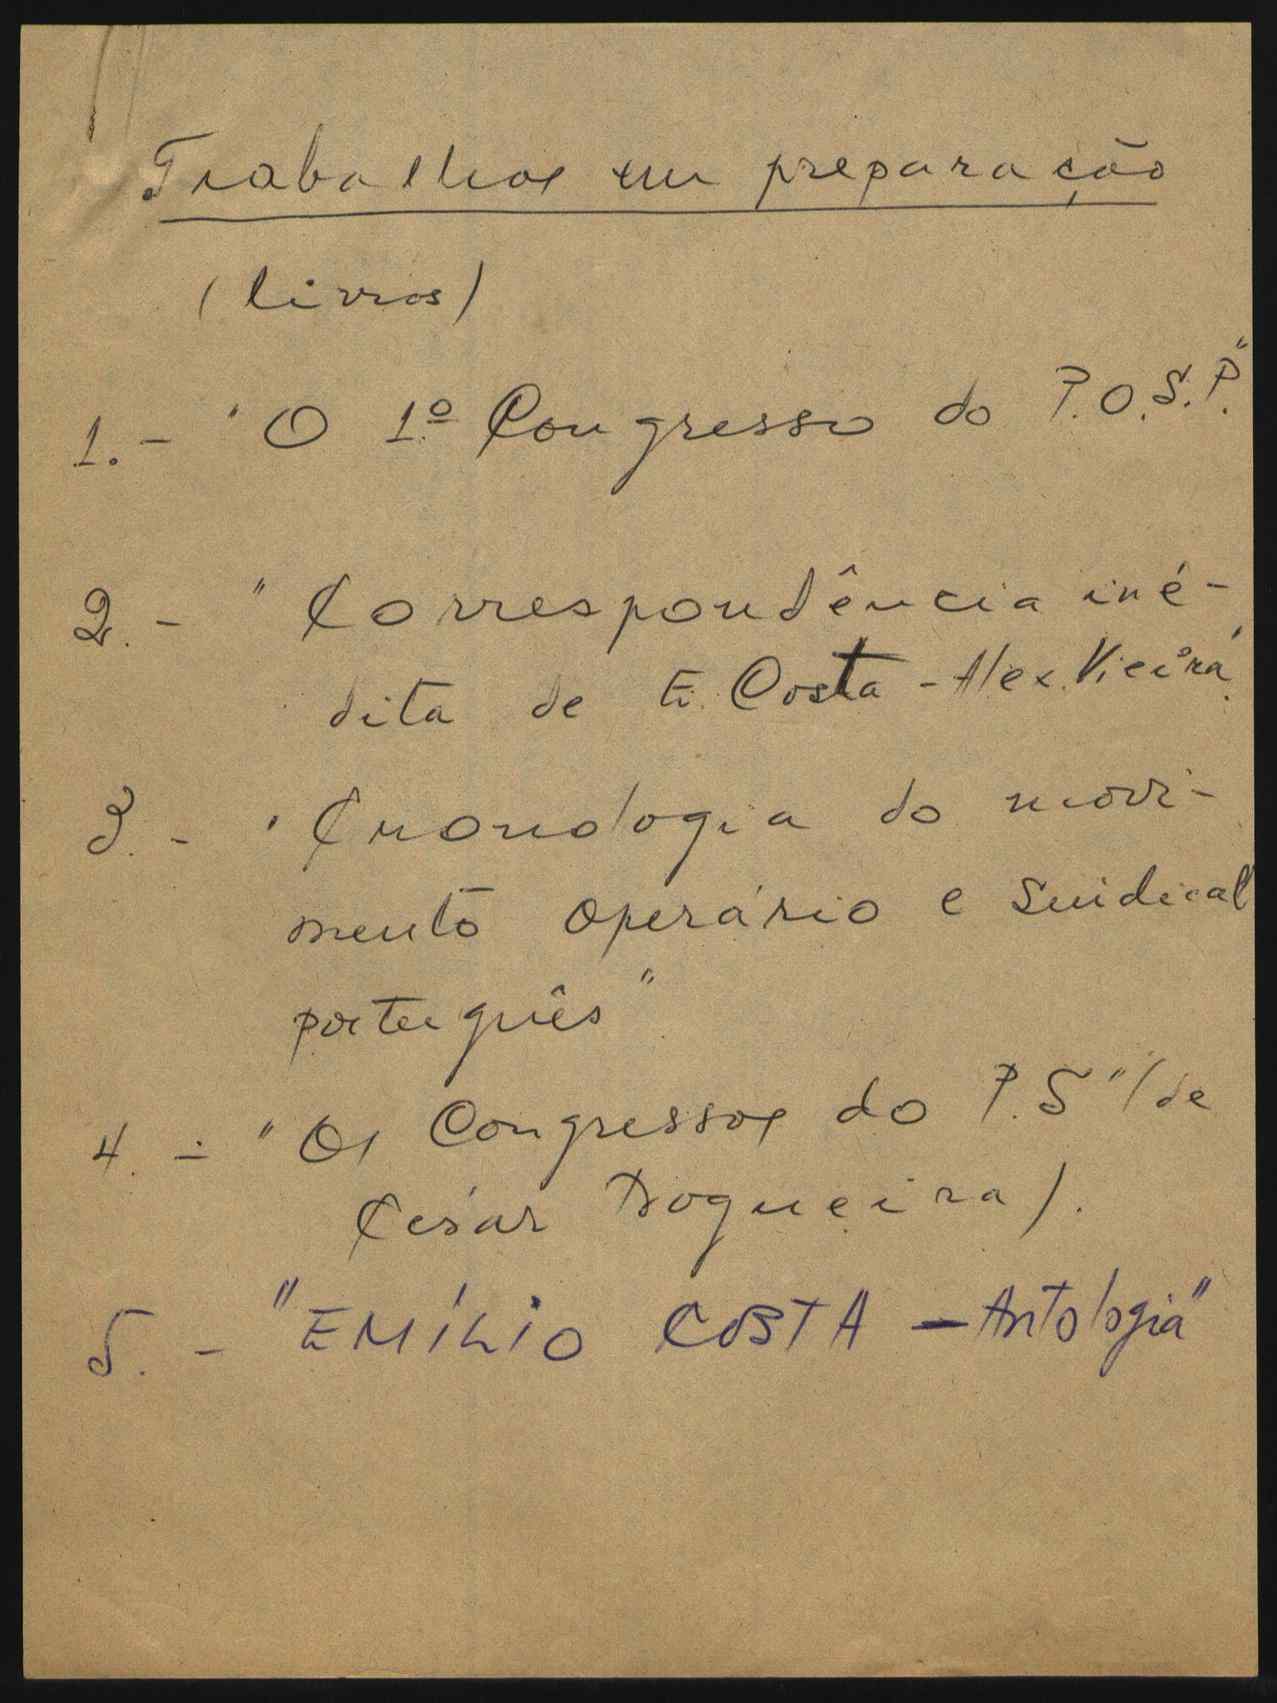 Trabalhos em preparação
(livros)
1. - "O 1.º Congresso do P.O.S.P."
2. - "Correspondência iné-
dita de E. Costa - Alex. Vieira"
3. - "Cronologia do movi-
mento operário e sindical
português"
4. - "Os Congressos do P.S" (de
César Nogueira).
5. - "EMÍLIO COSTA - Antologia"